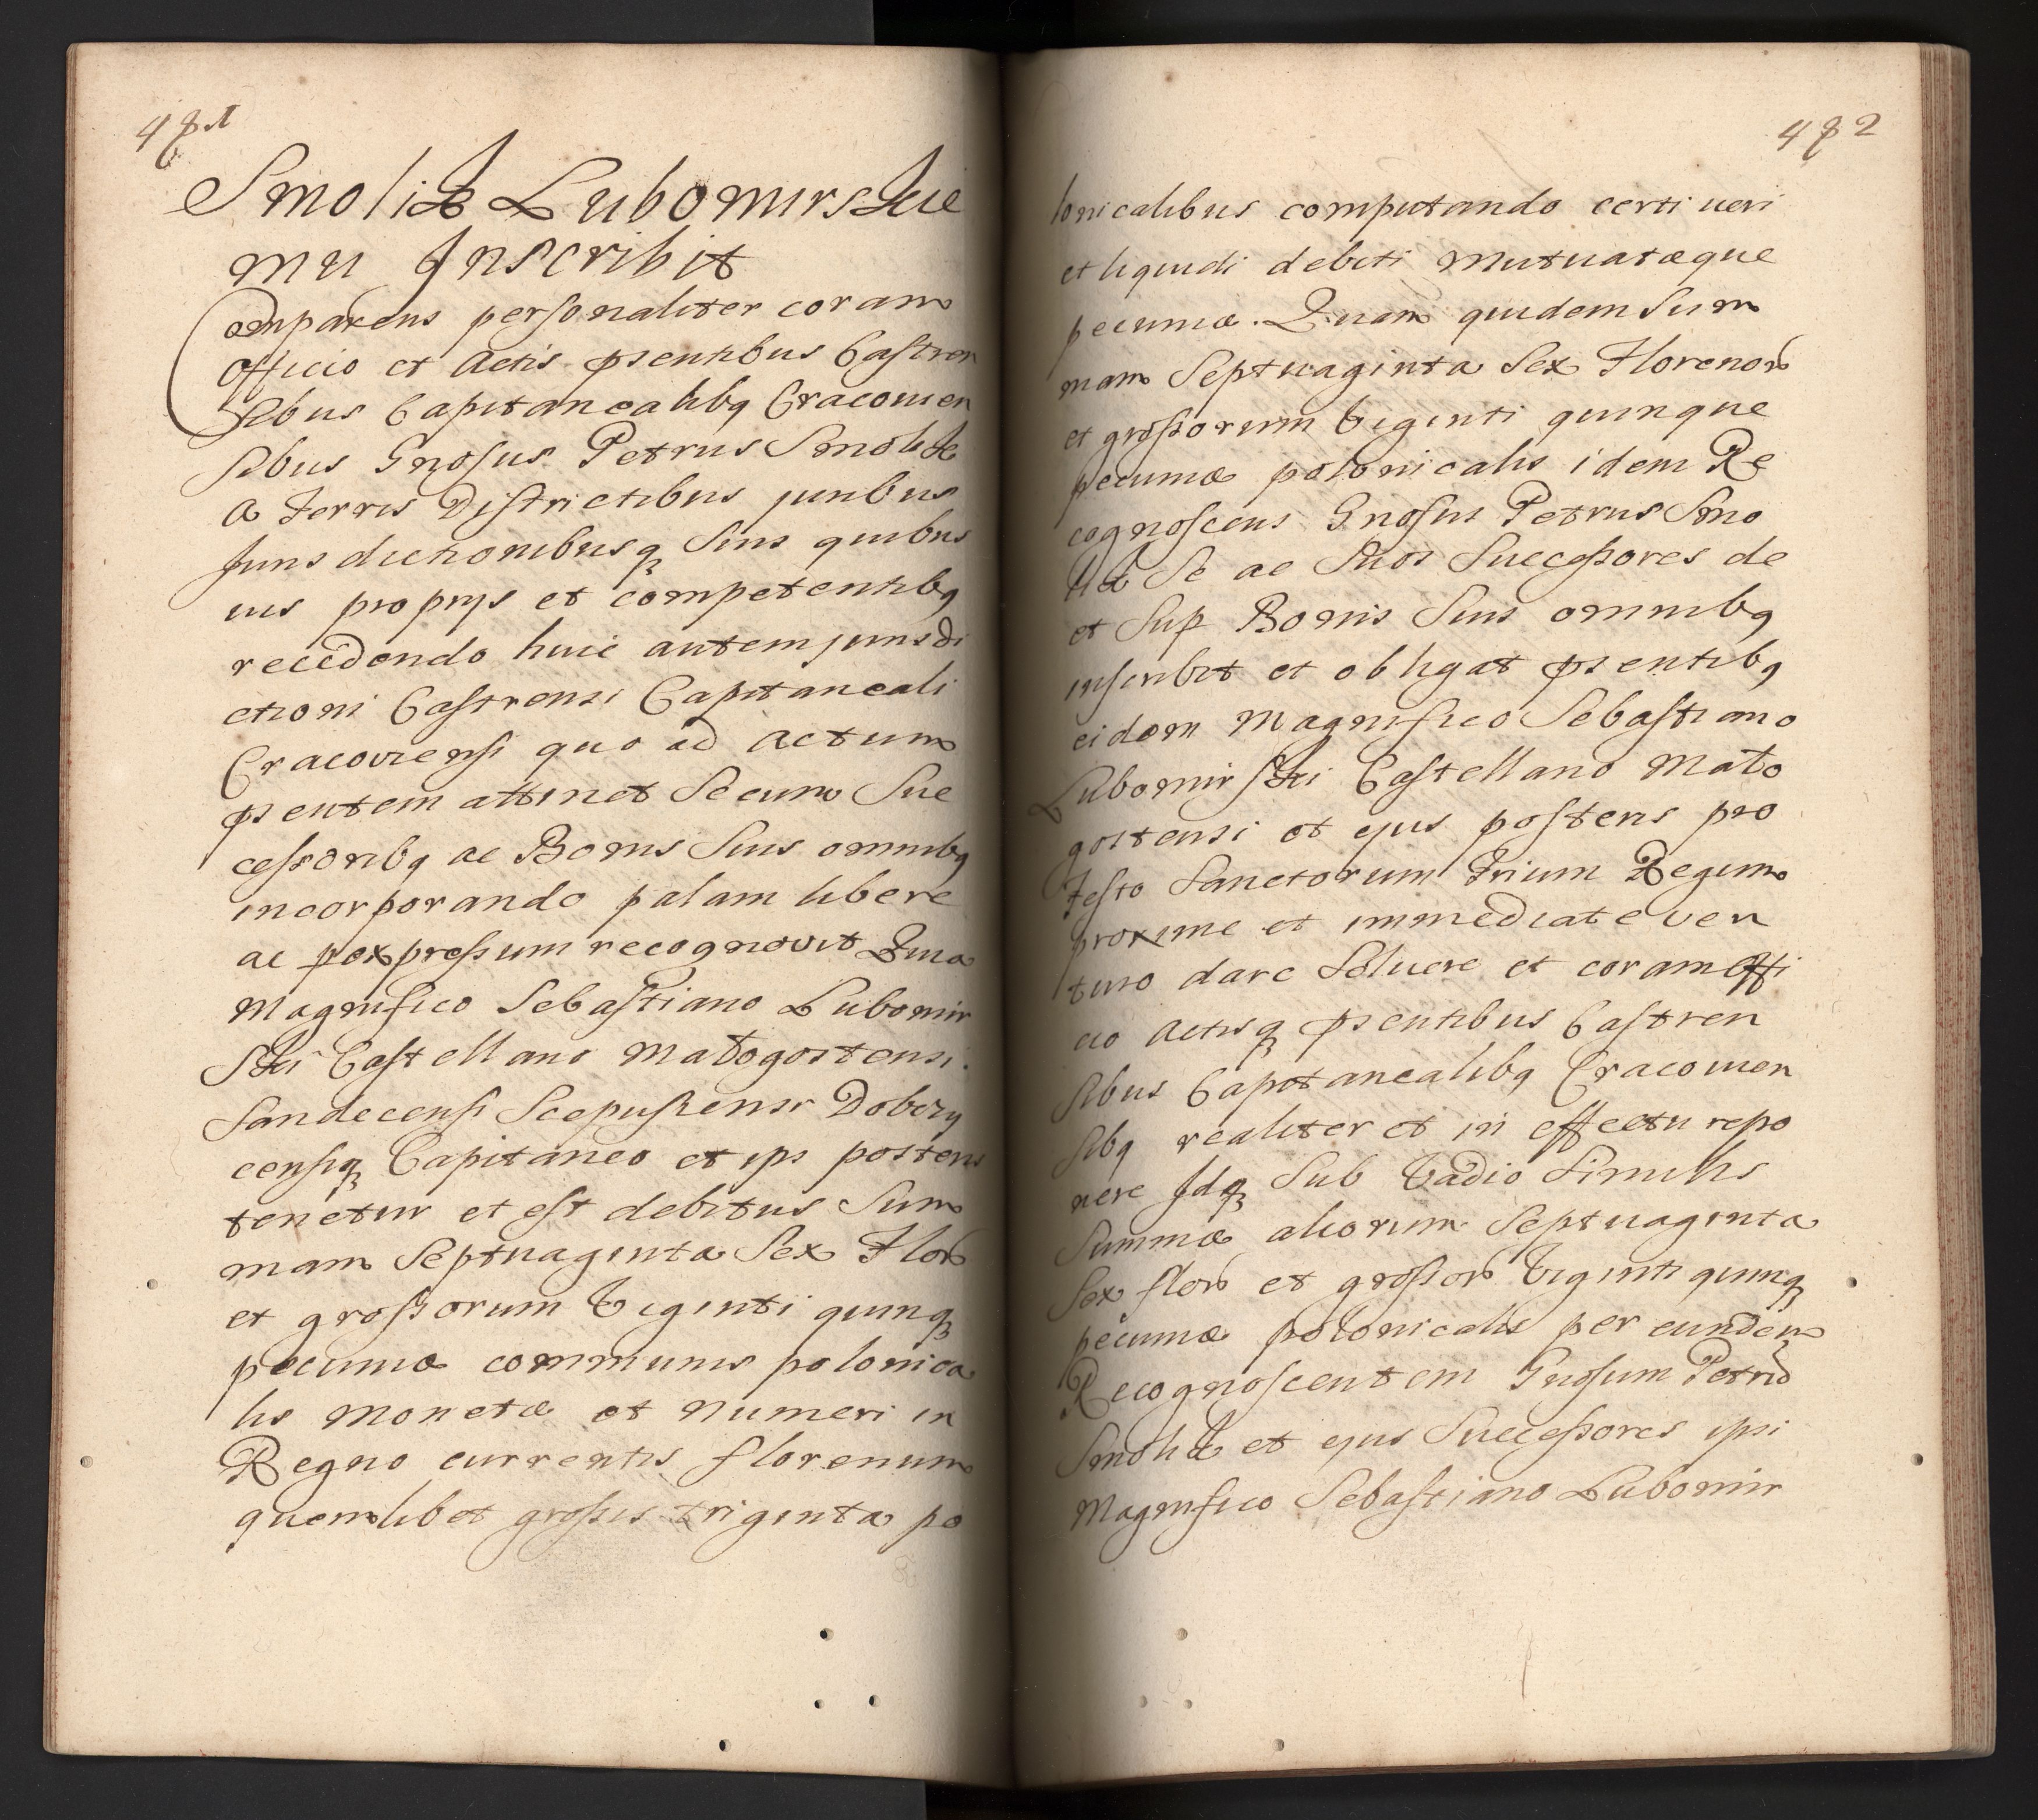 481
Smolik Lubomirskie
mu Inscribit
Comparens personaliter coram
Officio et Actis pñsentibus Castren
sibus Capitanealibq Cracovien
sibus Gnosus Petrus Smolik
a Terris Districtibus juribus
Jurisdictionibusq Suis quibus
uis proprys et competentibq
recedendo huic autem jurisdi
ctioni Castrensi Capitaneali
Cracoviensi quo ad actum
pñsentem attinet Secum Suc
cessoribq ac Bonis Suis omnibq
incorporando palam libere
ac p expressum recognovit Quia
Magnifico Sebastiano Lubomir
Ski Castellano Małogostensi
Sandecensi Scepusiensi Dobczy
censiq Capitaneo et ips posteris
tenetur et est debitus Sum
mam Septuaginta Sex Flor
et grossorum Viginti quinq
pecuniæ communis polonica
lis Monetæ et Numeri in
Regno currentis florenum
quemlibet grossis triginta po
482
lonicalibus computando certi veri
et liquidi debiti Mutuatæque
pecuniæ. Quam quidem Sum
mam Septuaginta Sex Florenor
et grossorum Viginti quinque
pecuniæ polonicalis idem Re
cognoscens Gnosus Petrus Smo
lik Se ac Suos Successores de
et Sup Bonis Suis omnibq
inscribit et obligat pñsentibq
eidem Magnifico Sebastiano
Lubomirski Castellano Mało
gostensi et ejus posteris pro
Festo Sanctorum Trium Regum
proxime et immediate ven
turo dare Soluere et coram Offi
cio Actisq pñsentibus Castren
sibus Capitanealibq Cracovien
sibq realiter et in effectu repo
nere Idq Sub Vadio Similis
Summæ aliorum Septuaginta
Sex flor et grossor Viginti quinq
pecuniæ polonicalis per eundem
Recognoscentem Gnosum Petrū
Smolik et ejus Successores ipsi
Magnifico Sebastiano Lubomir